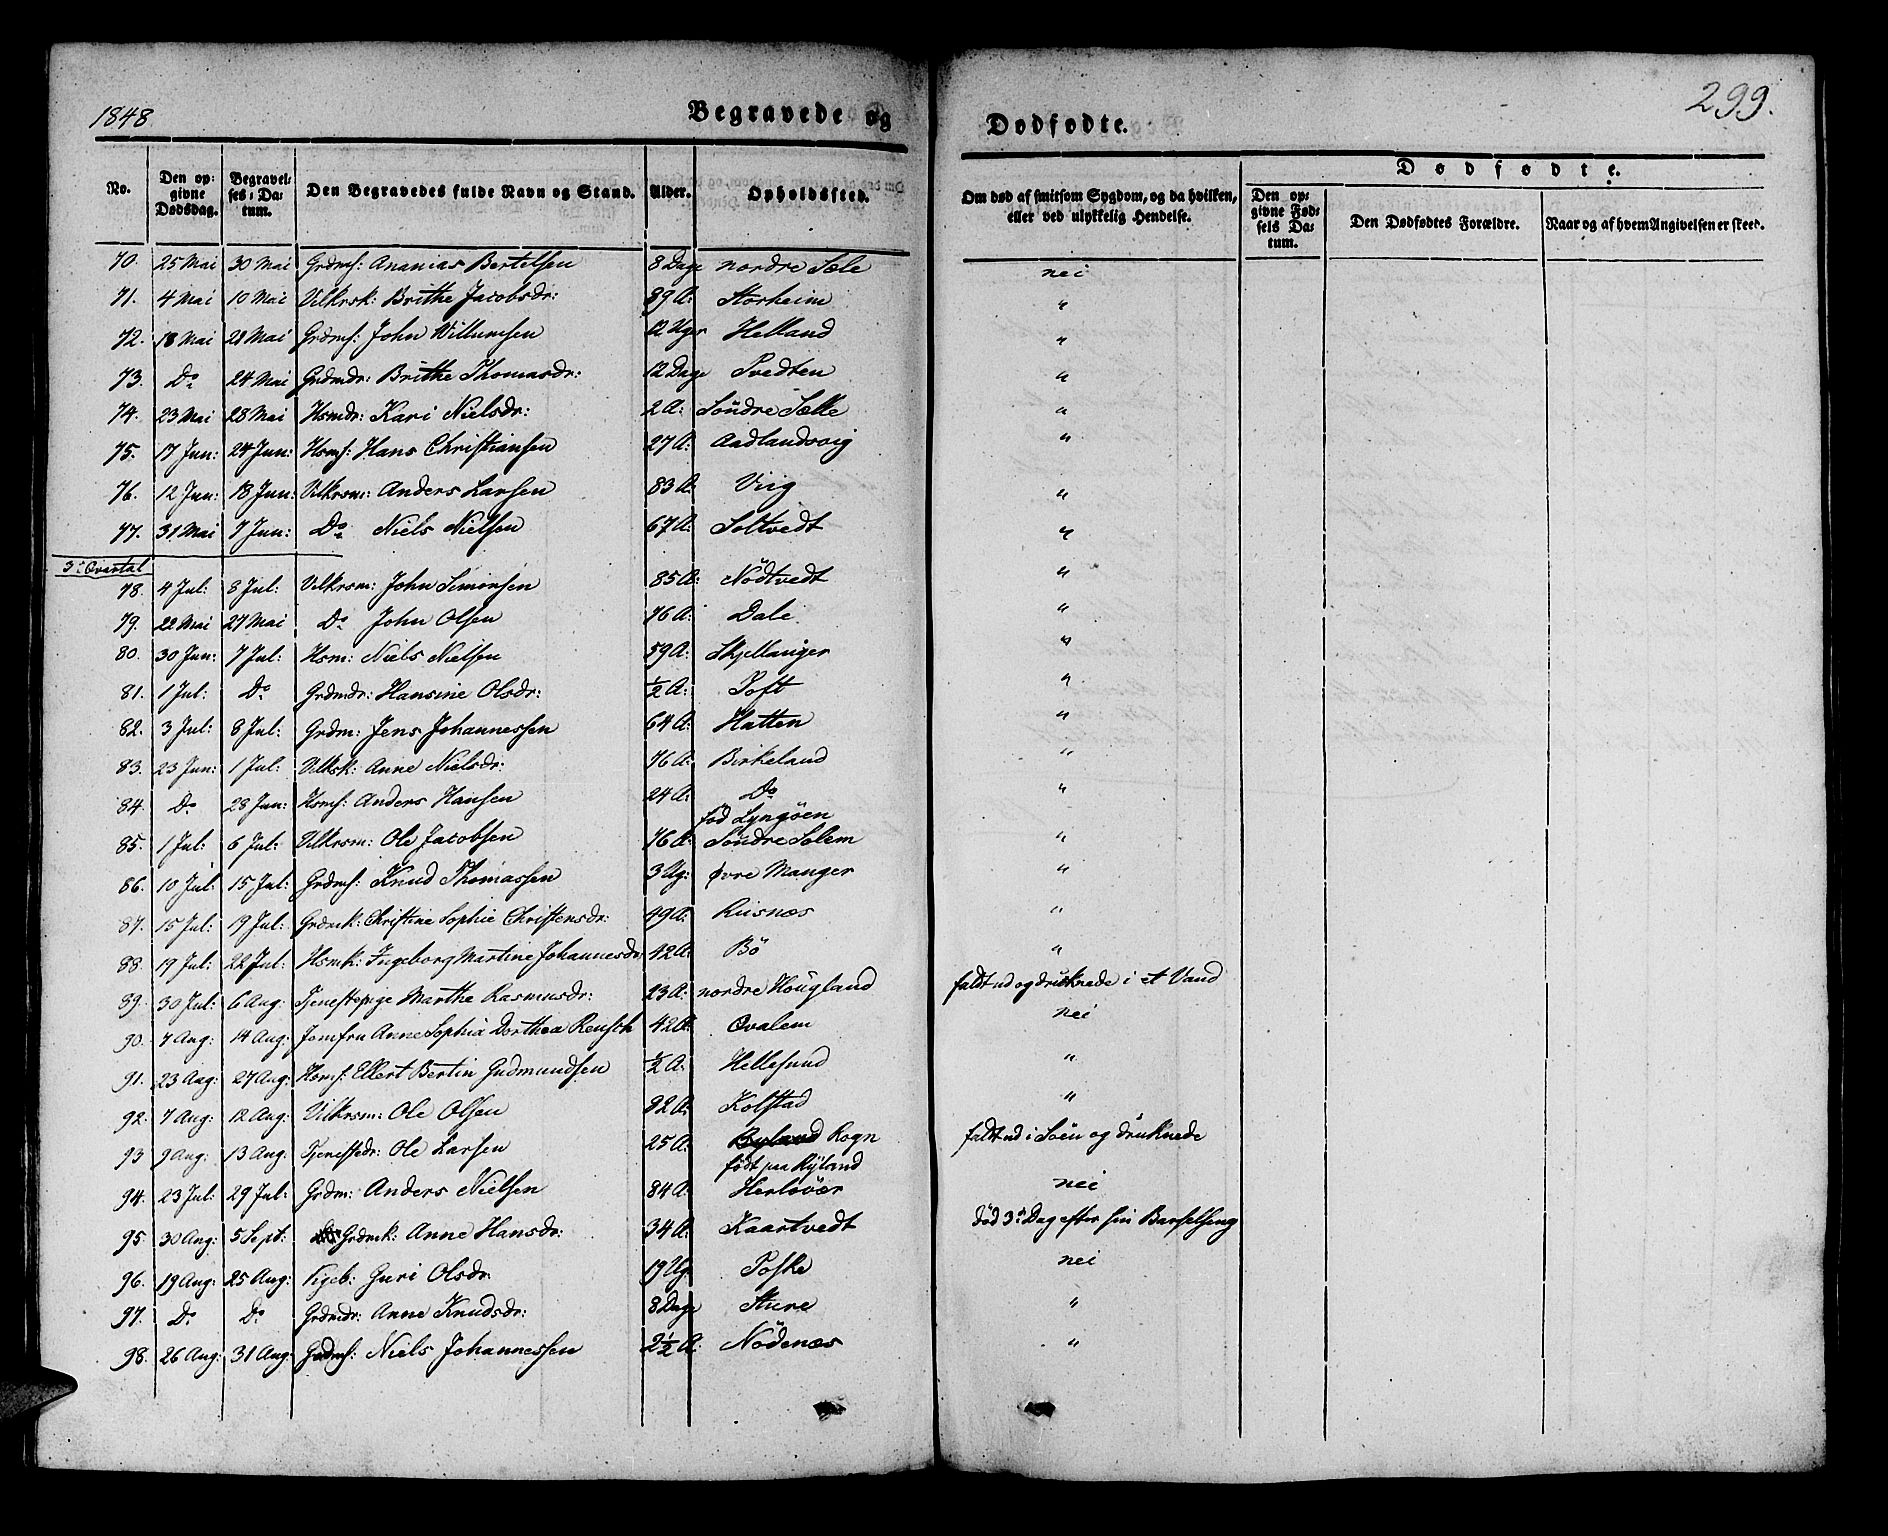 1848
Begravede og Dødfødte.
299.
No. | Den opgivne Dødsdag. | Begravelses-Datum. | Den Begravedes fulde Navn og Stand. | Alder. | Opholdssted. | Om død af smitsom Sygdom, og da hvilken, eller ved ulykkelig Hendelse. | Dødfødte. | Den opgivne Fødsels Datum. | Den Dødfødtes Forældre. | Naar og af hvem Angivelsen er skeed.
70. | 25 Mai | 30 Mai | Grdms: Ananias Bertelsen | 8 Dage | nordre Sæle | nei
71. | 4 Mai | 10 Mai | Vilkrsk: Brithe Jacobsdr: | 89 A: | Storheim | "
72. | 18 Mai | 28 Mai | Grdms: John Willumsen | 12 Uger | Helland | "
73. | Do | 24 Mai | Grdmdr: Brithe Thomasdr: | 12 Dage | Tvedten | "
74. | 23 Mai | 28 Mai | Hsmdr: Kari Nielsdr: | 2 A: | Söndre Sælle | "
75. | 17 Jun: | 24 Jun: | Hsms: Hans Christiansen | 27 A: | Aadlandsvig | "
76. | 12 Jun: | 18 Jun: | Vilkrsm: Anders Larsen | 83 A: | Viig | "
77. | 31 Mai | 7 Jun: | Do Niels Nielsen | 67 A: | Soltvedt | "
3die Qvartal
78. | 4 Jul: | 8 Jul: | Vilkrsm: John Simonsen | 85 A: | Nödtvedt | "
79. | 22 Mai | 27 Mai | Do John Olsen | 76 A: | Dale | "
80. | 30 Jun: | 7 Jul: | Hsm: Niels Nielsen | 59 A: | Skjellanger | "
81. | 1 Jul: | Do | Grdmdr: Hansine Olsdr: | ½ A: | Toft | "
82. | 3 Jul: | 8 Jul: | Grdm: Jens Johannessen | 64 A: | Hatten | "
83. | 23 Jun: | 1 Jul: | Vilksk: Anne Nielsdr: | 76 A: | Birkeland | "
84. | Do | 28 Jun: | Hsms: Anders Hansen | 24 A: | Do | "
född Lyngöen
85. | 1 Jul: | 6 Jul: | Vilkrsm: Ole Jacobsen | 76 A: | Söndre Solem | "
86. | 10 Jul: | 15 Jul: | Grdms: Knud Thomassen | 3 Ug: | øvre Manger | "
87. | 15 Jul: | 19 Jul: | Grdmk: Christine Sophie Christensdr: | 49 A: | Riisnæs | "
88. | 19 Jul: | 22 Jul: | Hsmk: Ingeborg Martine Johannesdr: | 42 A: | Bö | "
89. | 30 Jul: | 6 Aug: | Tjenestepige Marthe Rasmusdr: | 23 A: | nordre Höugland | faldt ud og druknede i et Vand
90. | 7 Aug: | 14 Aug: | Jomfru Anne Sophia Dorthea Rensch | 42 A: | Qvalem | nei
91. | 23 Aug: | 27 Aug: | Hsms: Ellert Bertin Gudmundsen | ½ A: | Hellesund | "
92. | 7 Aug: | 12 Aug: | Vilkrsm: Ole Olsen | 82 A: | Kolstad | "
93 | 9 Aug: | 13 Aug: | Tjenestedr: Ole Larsen | 25 A: | Ryland Rogn | faldt ud i Söen og druknede
födt paa Ryland
94. | 23 Jul: | 29 Jul: | Grdm: Anders Nielsen | 84 A: | Herlövær | nei
95. | 30 Aug: | 5 Sept: | Grdmk: Anne Hansdr: | 34 A: | Kaartvedt | död 3die Dag efter sin Barselseng
96. | 19 Aug: | 25 Aug: | Pigeb: Guri Olsdr | 19 Ug | Toske | nei
97. | Do | Do | Grdmdr: Anne Knudsdr: | 8 Dage | Sture | "
98. | 26 Aug: | 31 Aug: | Grdms: Niels Johannessen | 2½ A: | Nödenæs | "